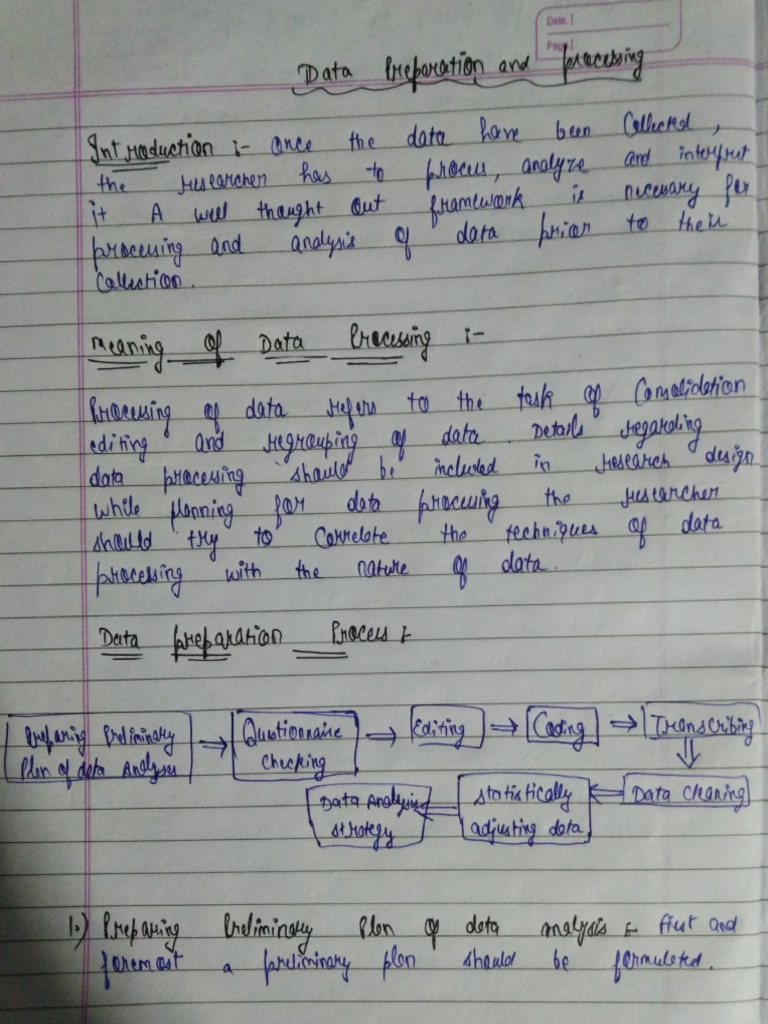 Date.
Page
Data Preparation and processing
Introduction :- once the data have been Collected,
the researcher has to process, analyze and interpret
it A well thought out framework is necessary for
processing and analysis of data prior to their
Collection.
Meaning of Data Processing :-
Processing of data refers to the task of Consolidation
editing and regrouping of data. Details regarding
data processing should be included in research design
while planning for data processing the researcher
should try to correlate the techniques of data
processing with the nature of data.
Data preparation Process :-
Preparing Preliminary
Plan of data Analyses
Questionnaire
checking
Editing
Coding
Transcribing
Data Cleaning
statistically
adjusting data
Data Analysing
strategy
1.) Preparing Preliminary Plan of data analysis :- first and
foremost a preliminary plan should be formulated.